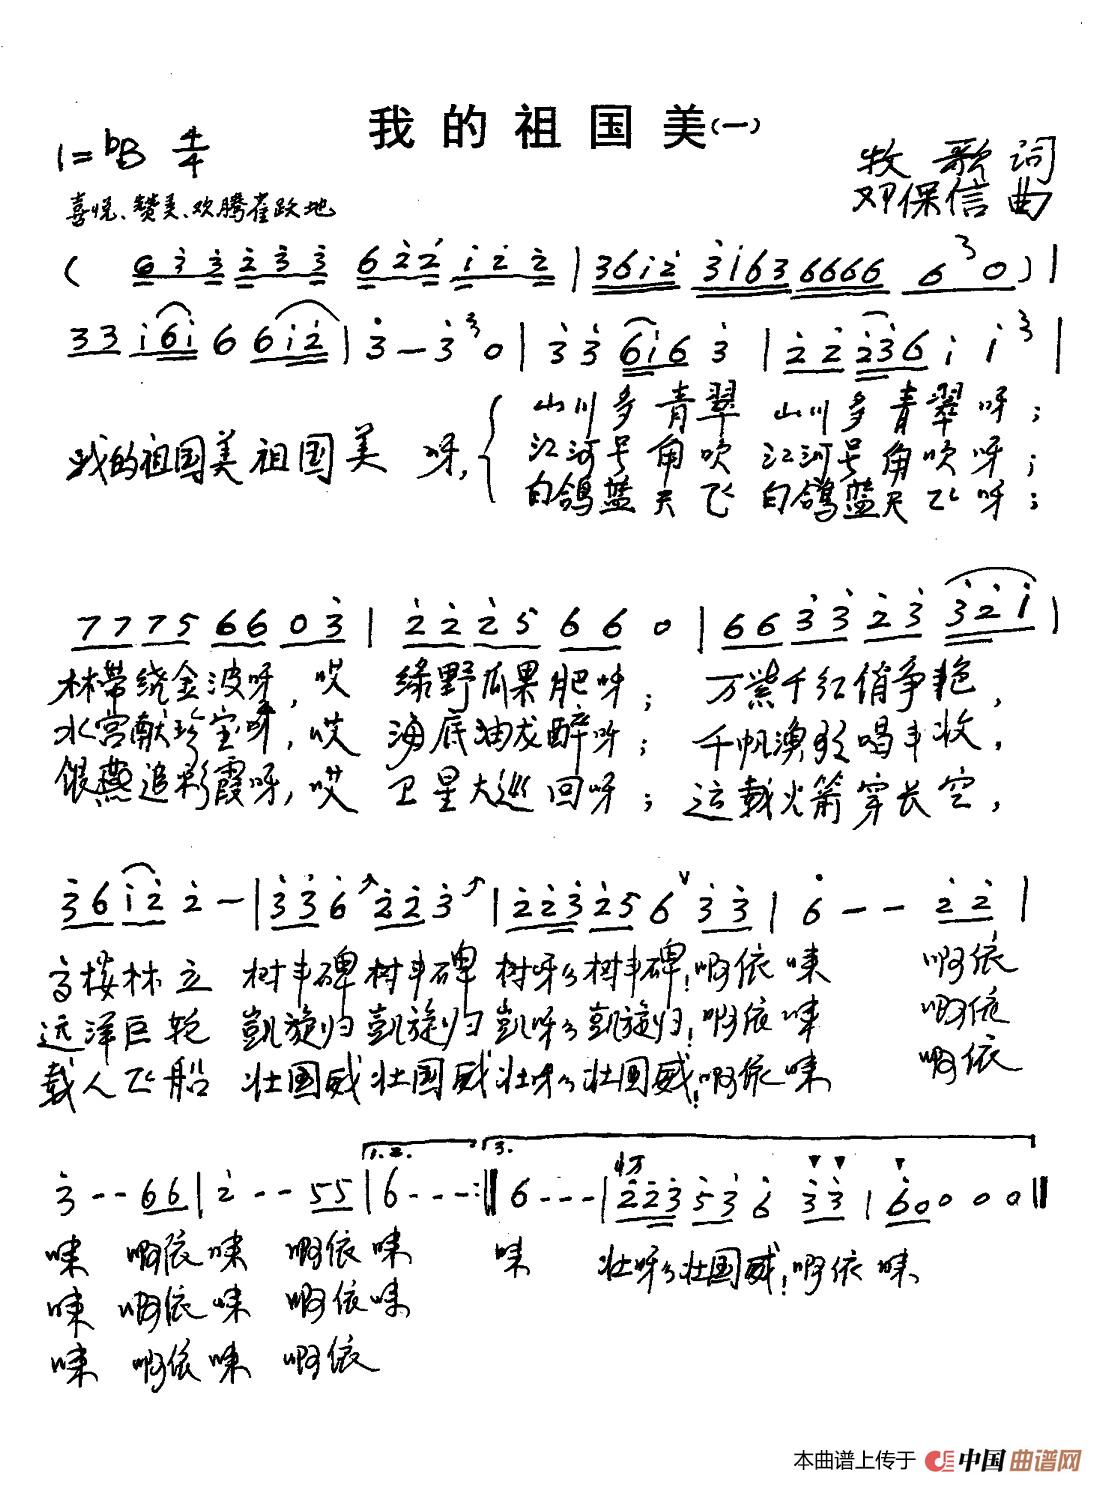 我的祖国美(一)
1=♭B 4/4
牧歌 词
邓保信 曲
喜悦、赞美、欢腾雀跃地
( 6 3 3 2 3 3 6 2 2 1 2 2 | 3 6 1 2 3 1 6 3 6 6 6 6 6 3 0 ) |
3 3 1 6 1 6 6 1 2 | 3 — 3 3 0 | 3 3 6 1 6 3 | 2 2 2 3 6 1 1 3 |
山川多青翠 山川多青翠呀；
我的祖国美祖国美 呀，
江河号角吹 江河号角吹呀；
白鸽蓝天飞 白鸽蓝天飞呀；
7 7 7 5 6 6 0 3 | 2 2 2 5 6 6 0 | 6 6 3 3 2 3 3 2 1 |
林带绕金波呀，哎 绿野瓜果肥呀； 万紫千红俏争艳，
水宫献珍宝呀，哎 海底油龙醉呀； 千帆渔歌唱丰收，
银燕追彩霞呀，哎 卫星大巡回呀； 运载火箭穿长空，
3 6 1 2 2 — | 3 3 6 2 2 3 | 2 2 3 2 5 6 ∨ 3 3 | 6 — — 2 2 |
高楼林立 树丰碑树丰碑 树呀么树丰碑！啊依味 啊依
远洋巨轮 凯旋归凯旋归 凯呀么凯旋归！啊依味 啊依
载人飞船 壮国威壮国威 壮呀么壮国威！啊依味 啊依
1. 2. 3.
3 - - 6 6 | 2 - - 5 5 | 6 - - - :‖ 6 - - - | 2 2 3 5 3 6 3 3 | 6 0 0 0 0 ‖
味 啊依味 啊依味 味 壮呀么壮国威！啊依味
味 啊依味 啊依味
味 啊依味 啊依
本曲谱上传于 中国曲谱网